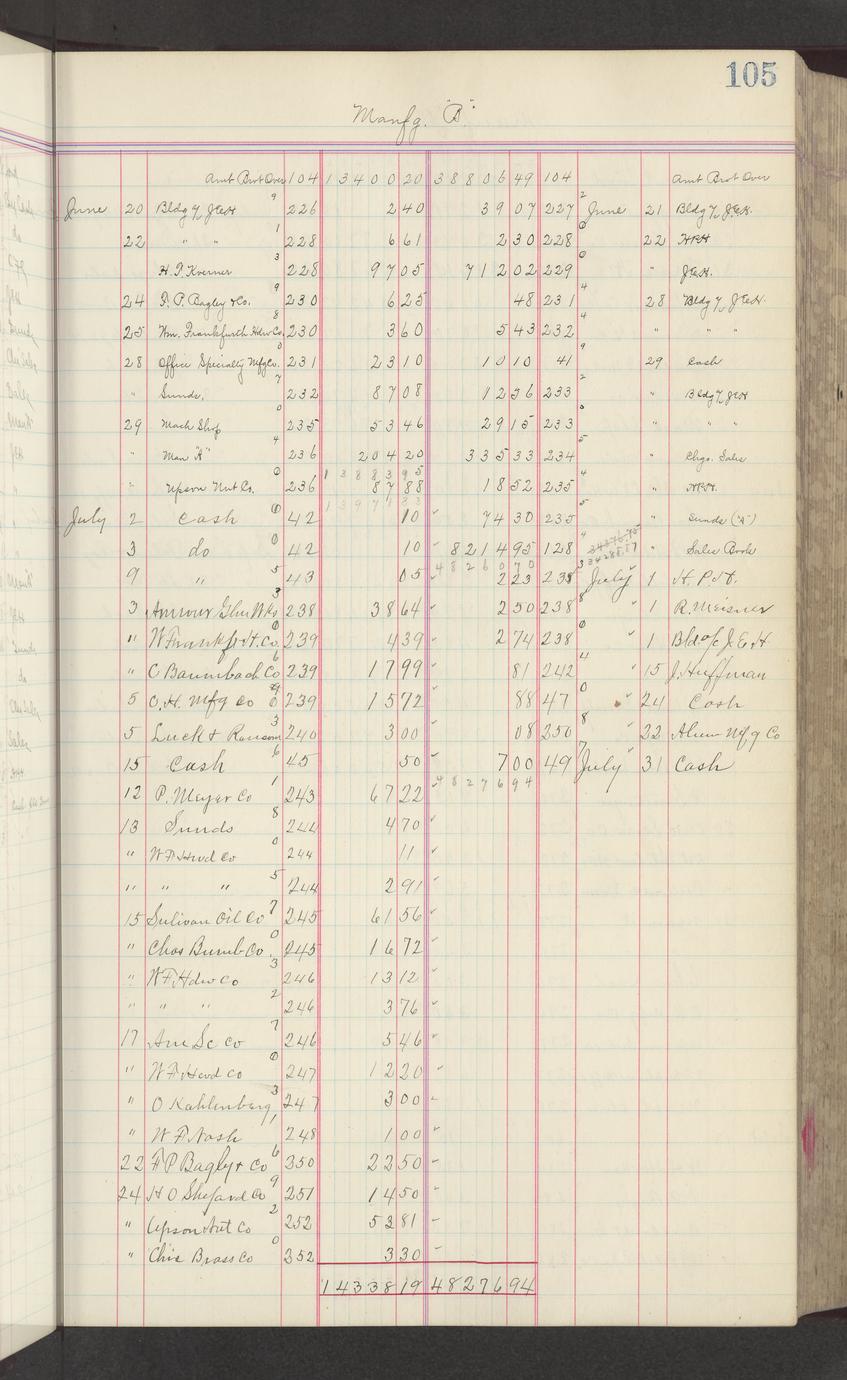 105
Manfg. "B"
Amt Brot Over 104 13400 20 38806 49 104 Amt Brot Over
June 20 Bldg % J.E.H 9 226 2 40 39 07 227 2 June 21 Bldg % J.E.H.
22 " " 1 228 6 61 2 30 228 0 22 H.P.H
H.P. Kverner 3 228 97 05 712 02 229 0 " J.E.H.
24 F. P. Bagley & Co. 9 230 6 25 48 231 4 28 Bldg % J.E.H.
25 Wm. Frankfurth Hdw Co. 8 230 3 60 5 43 232 4 " " "
28 Office Specialty Mfg Co. 0 231 23 10 10 10 41 9 29 Cash
" Sunds. 7 232 87 08 12 56 233 2 " Bldg % J.E.H
29 Mach Shop 0 235 53 46 29 15 233 " " "
" Man "A" 4 236 204 20 335 33 234 5 " Chgo. Sales
13883 95
" Upson Nut Co. 0 236 87 88 18 52 235 4 " H.P.H.
July 2 Cash 0 42 10 74 30 235 5 " Sunds ("A")
3 do 0 42 10 8214 95 128 4 " Sales Book
48260 70
9 " 5 43 05 2 23 238 3 July 1 H. P. H.
3 Armour Glue Wks 3 238 38 64 2 50 238 8 " 1 R. Meisner
" W Frankft H. Co. 0 239 4 39 2 74 238 0 " 1 Bld o/c J. E. H
" C Baumbach Co 6 239 17 99 81 242 4 " 15 J. Huffman
5 O. H. Mfg Co 239 15 72 88 47 0 " 24 Cash
5 Luck & Ransom 3 240 3 00 08 250 8 " 22 Alum Mfg Co
15 Cash 6 45 50 7 00 49 7 July 31 Cash
48276 94
12 P. Meyer Co 1 243 67 22
13 Sunds 8 244 4 70
" W F. Hwd Co 0 244 11
" " " 5 244 2 91
15 Sulivan Oil Co 7 245 61 56
" Chas Bumb Co. 0 245 16 72
" W F. Hdw Co 3 246 13 12
" " " 2 246 3 76
17 Am Sc Co 7 246 5 46
" W F. Hwd Co 0 247 12 20
" O Kahlenberg 3 247 3 00
" W F. Nash 1 248 1 00
22 F P Bagly & Co 6 350 22 50
24 H O Shepard Co 9 251 14 50
" Upson Nut Co 2 252 53 81
" Chis Brass Co 0 352 3 30
14338 19 48276 94